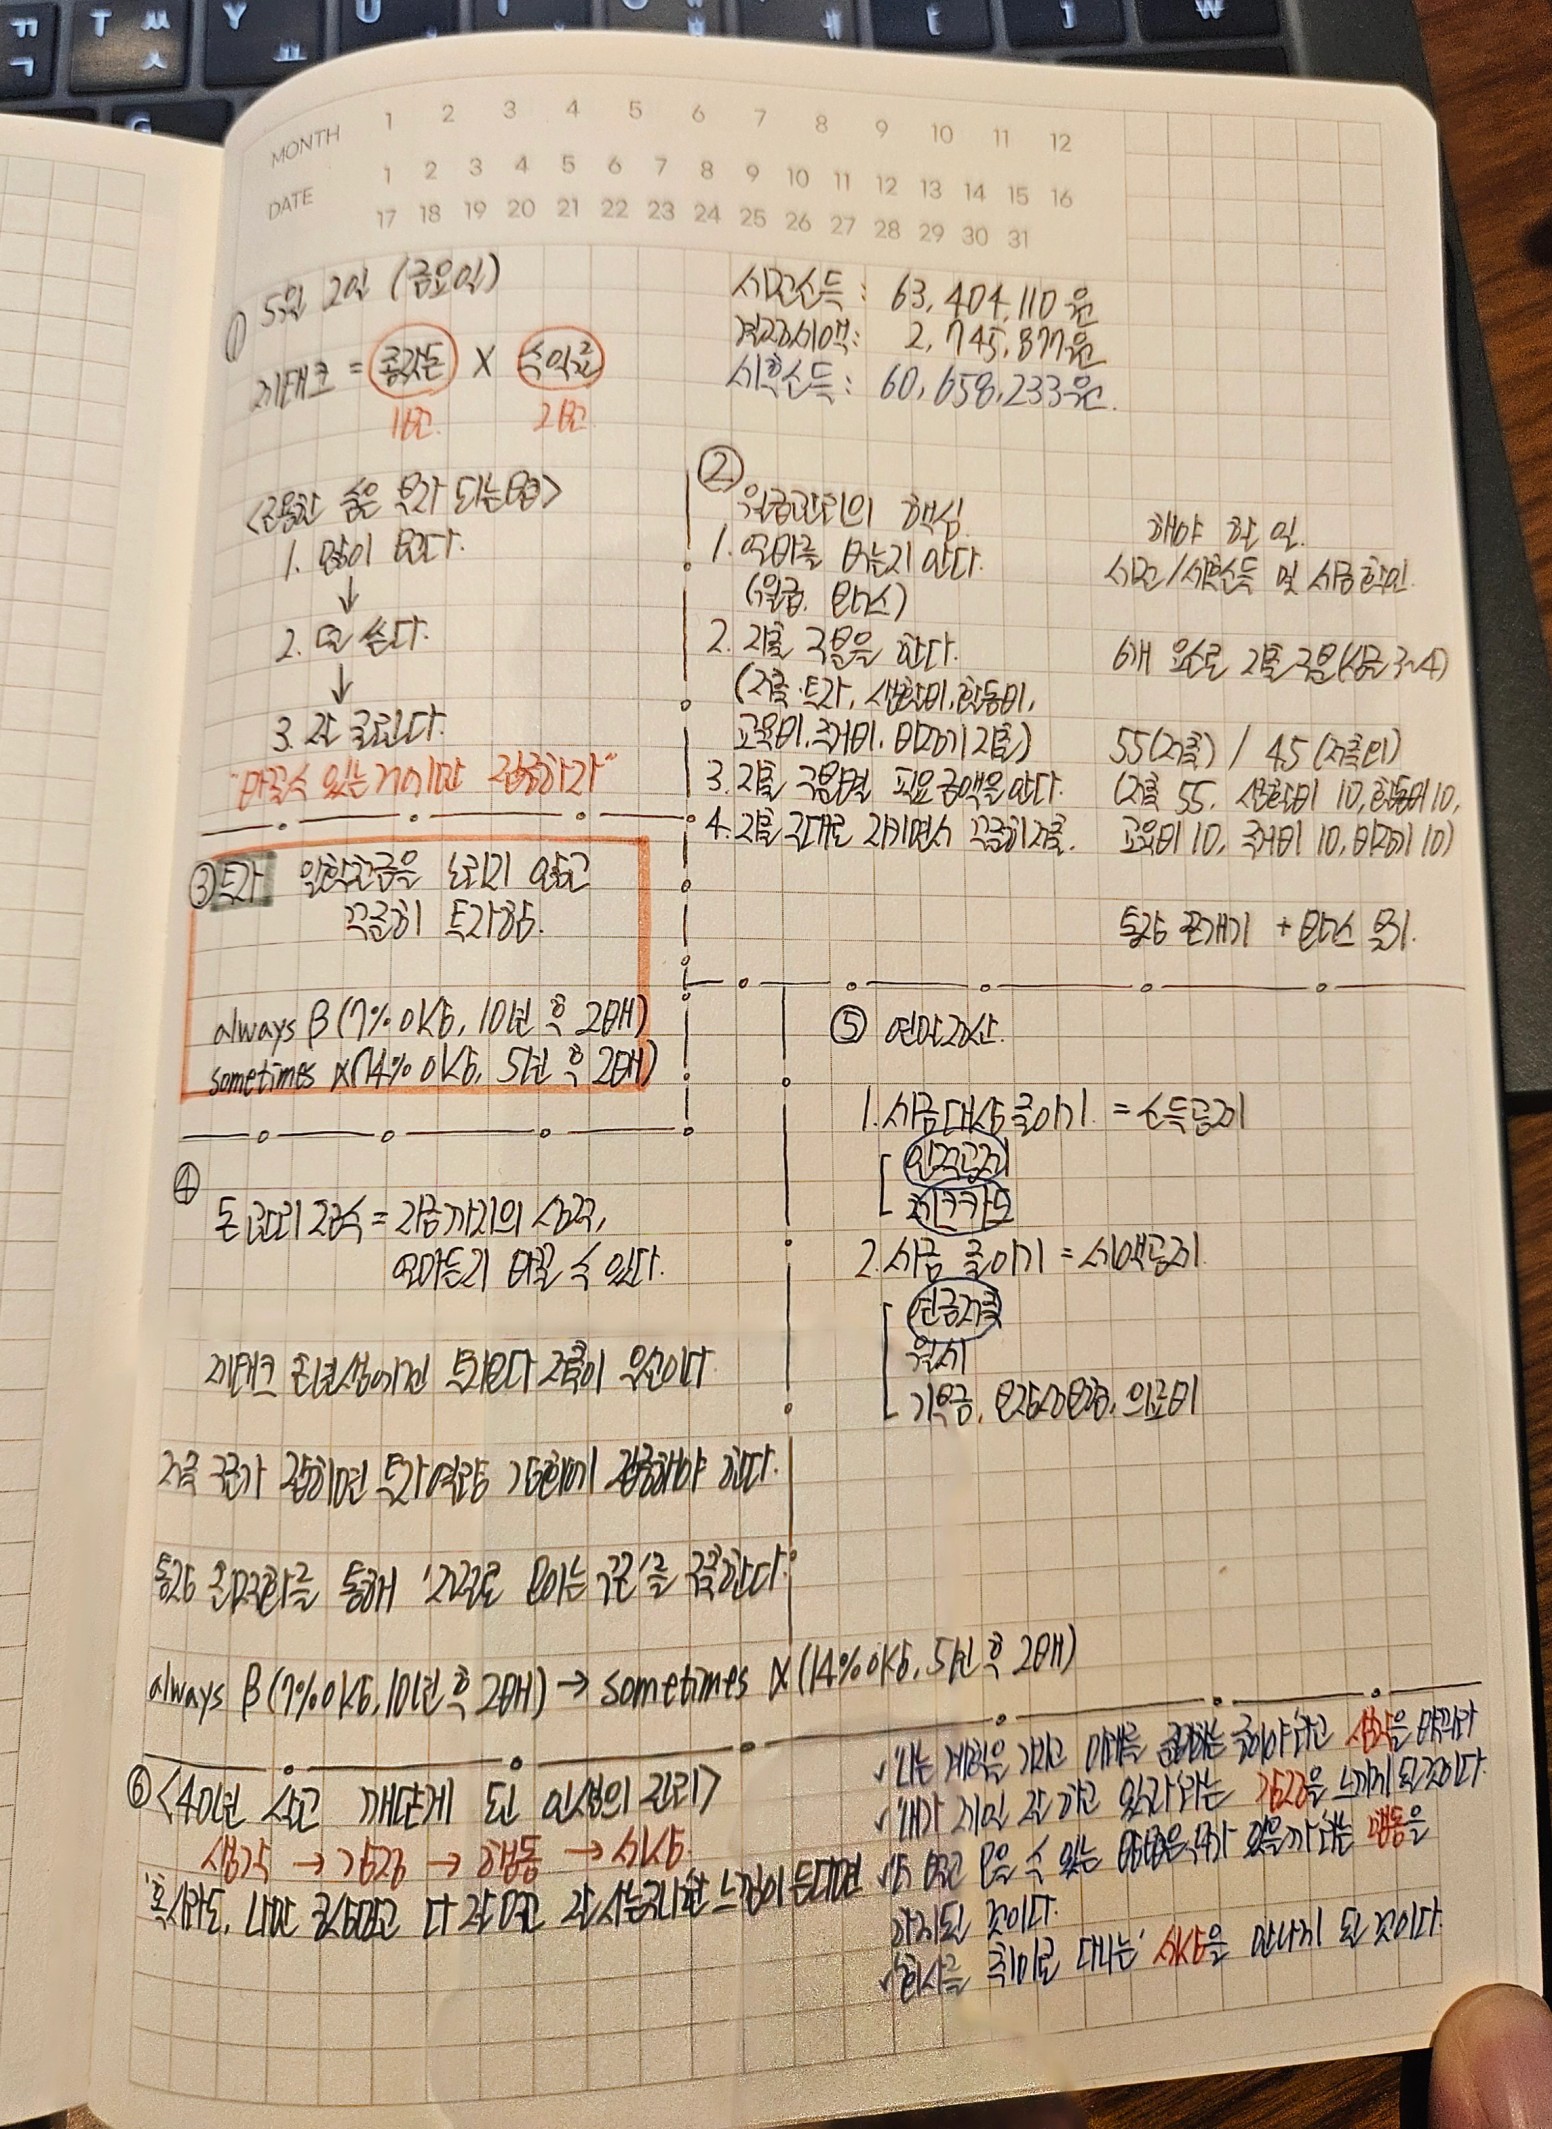 MONTH 1 2 3 4 5 6 7 8 9 10 11 12
DATE 1 2 3 4 5 6 7 8 9 10 11 12 13 14 15 16
17 18 19 20 21 22 23 24 25 26 27 28 29 30 31
① 5월 2일 (금요일)
재테크 = 종잣돈 X 수익률
1번 2번
세전소득 : 63,404,110원
결정세액 : 2,745,877원
세후소득 : 60,658,233원
<평범한 숨은 부자 되는 방법>
1. 많이 번다.
↓
2. 덜 쓴다.
↓
3. 잘 굴린다.
"바꿀 수 있는 거에만 집중하자"
②
월급관리의 핵심
1. 얼마를 버는지 안다.
(월급, 보너스)
2. 지출 구분을 한다.
(저축·투자, 생활비, 활동비,
교육비, 주거비, 비정기 지출)
3. 지출 구분별 필요금액을 안다.
4. 지출 그대로 지키면서 꾸준히 저축.
해야 할 일.
세전/세후소득 및 세금 확인.
6개 요소로 지출 구분(상단 3~4)
55(저축) / 45(저축외)
(저축 55, 생활비 10, 활동비 10,
교육비 10, 주거비 10, 비정기 10)
통장 쪼개기 + 보너스 묶기.
③ 투자 일확천금을 노리지 않고
꾸준히 투자함.
always β (7% 이상, 10년 후 2배)
sometimes α (14% 이상, 5년 후 2배)
④
돈 관리 공식 = 지금까지의 상황,
얼마든지 바꿀 수 있다.
재테크 초년생에겐 투자보다 저축이 우선이다.
저축 구조가 잡히면 투자역량 강화에 집중해야 한다.
통장 흐름을 통해 '자동으로 모이는 구조'를 구축한다.
always β (7% 이상, 10년 후 2배) → sometimes α (14% 이상, 5년 후 2배)
⑤ 연말정산.
1. 세금대상 줄이기 = 소득공제
인적공제
체크카드
2. 세금 줄이기 = 세액공제
연금저축
월세
기부금, 보장성보험, 의료비
⑥ <40년 살고 깨닫게 된 인생의 진리>
생각 → 감정 → 행동 → 세상
'혹시라도, 나만 빼고 다 잘 먹고 잘 사는 듯한 느낌이 든다면
✓'나는 계획을 가지고 미래를 준비하는 중이야'라고 생각을 바꿔라
✓'내가 제일 잘 하고 있구나'라는 감정을 느끼게 된 것이다.
✓'더 벌고 모을 수 있는 방법은 뭐가 있을까'라는 행동을
하게 된 것이다.
✓'회사를 취미로 다니는' 세상을 만나게 된 것이다.